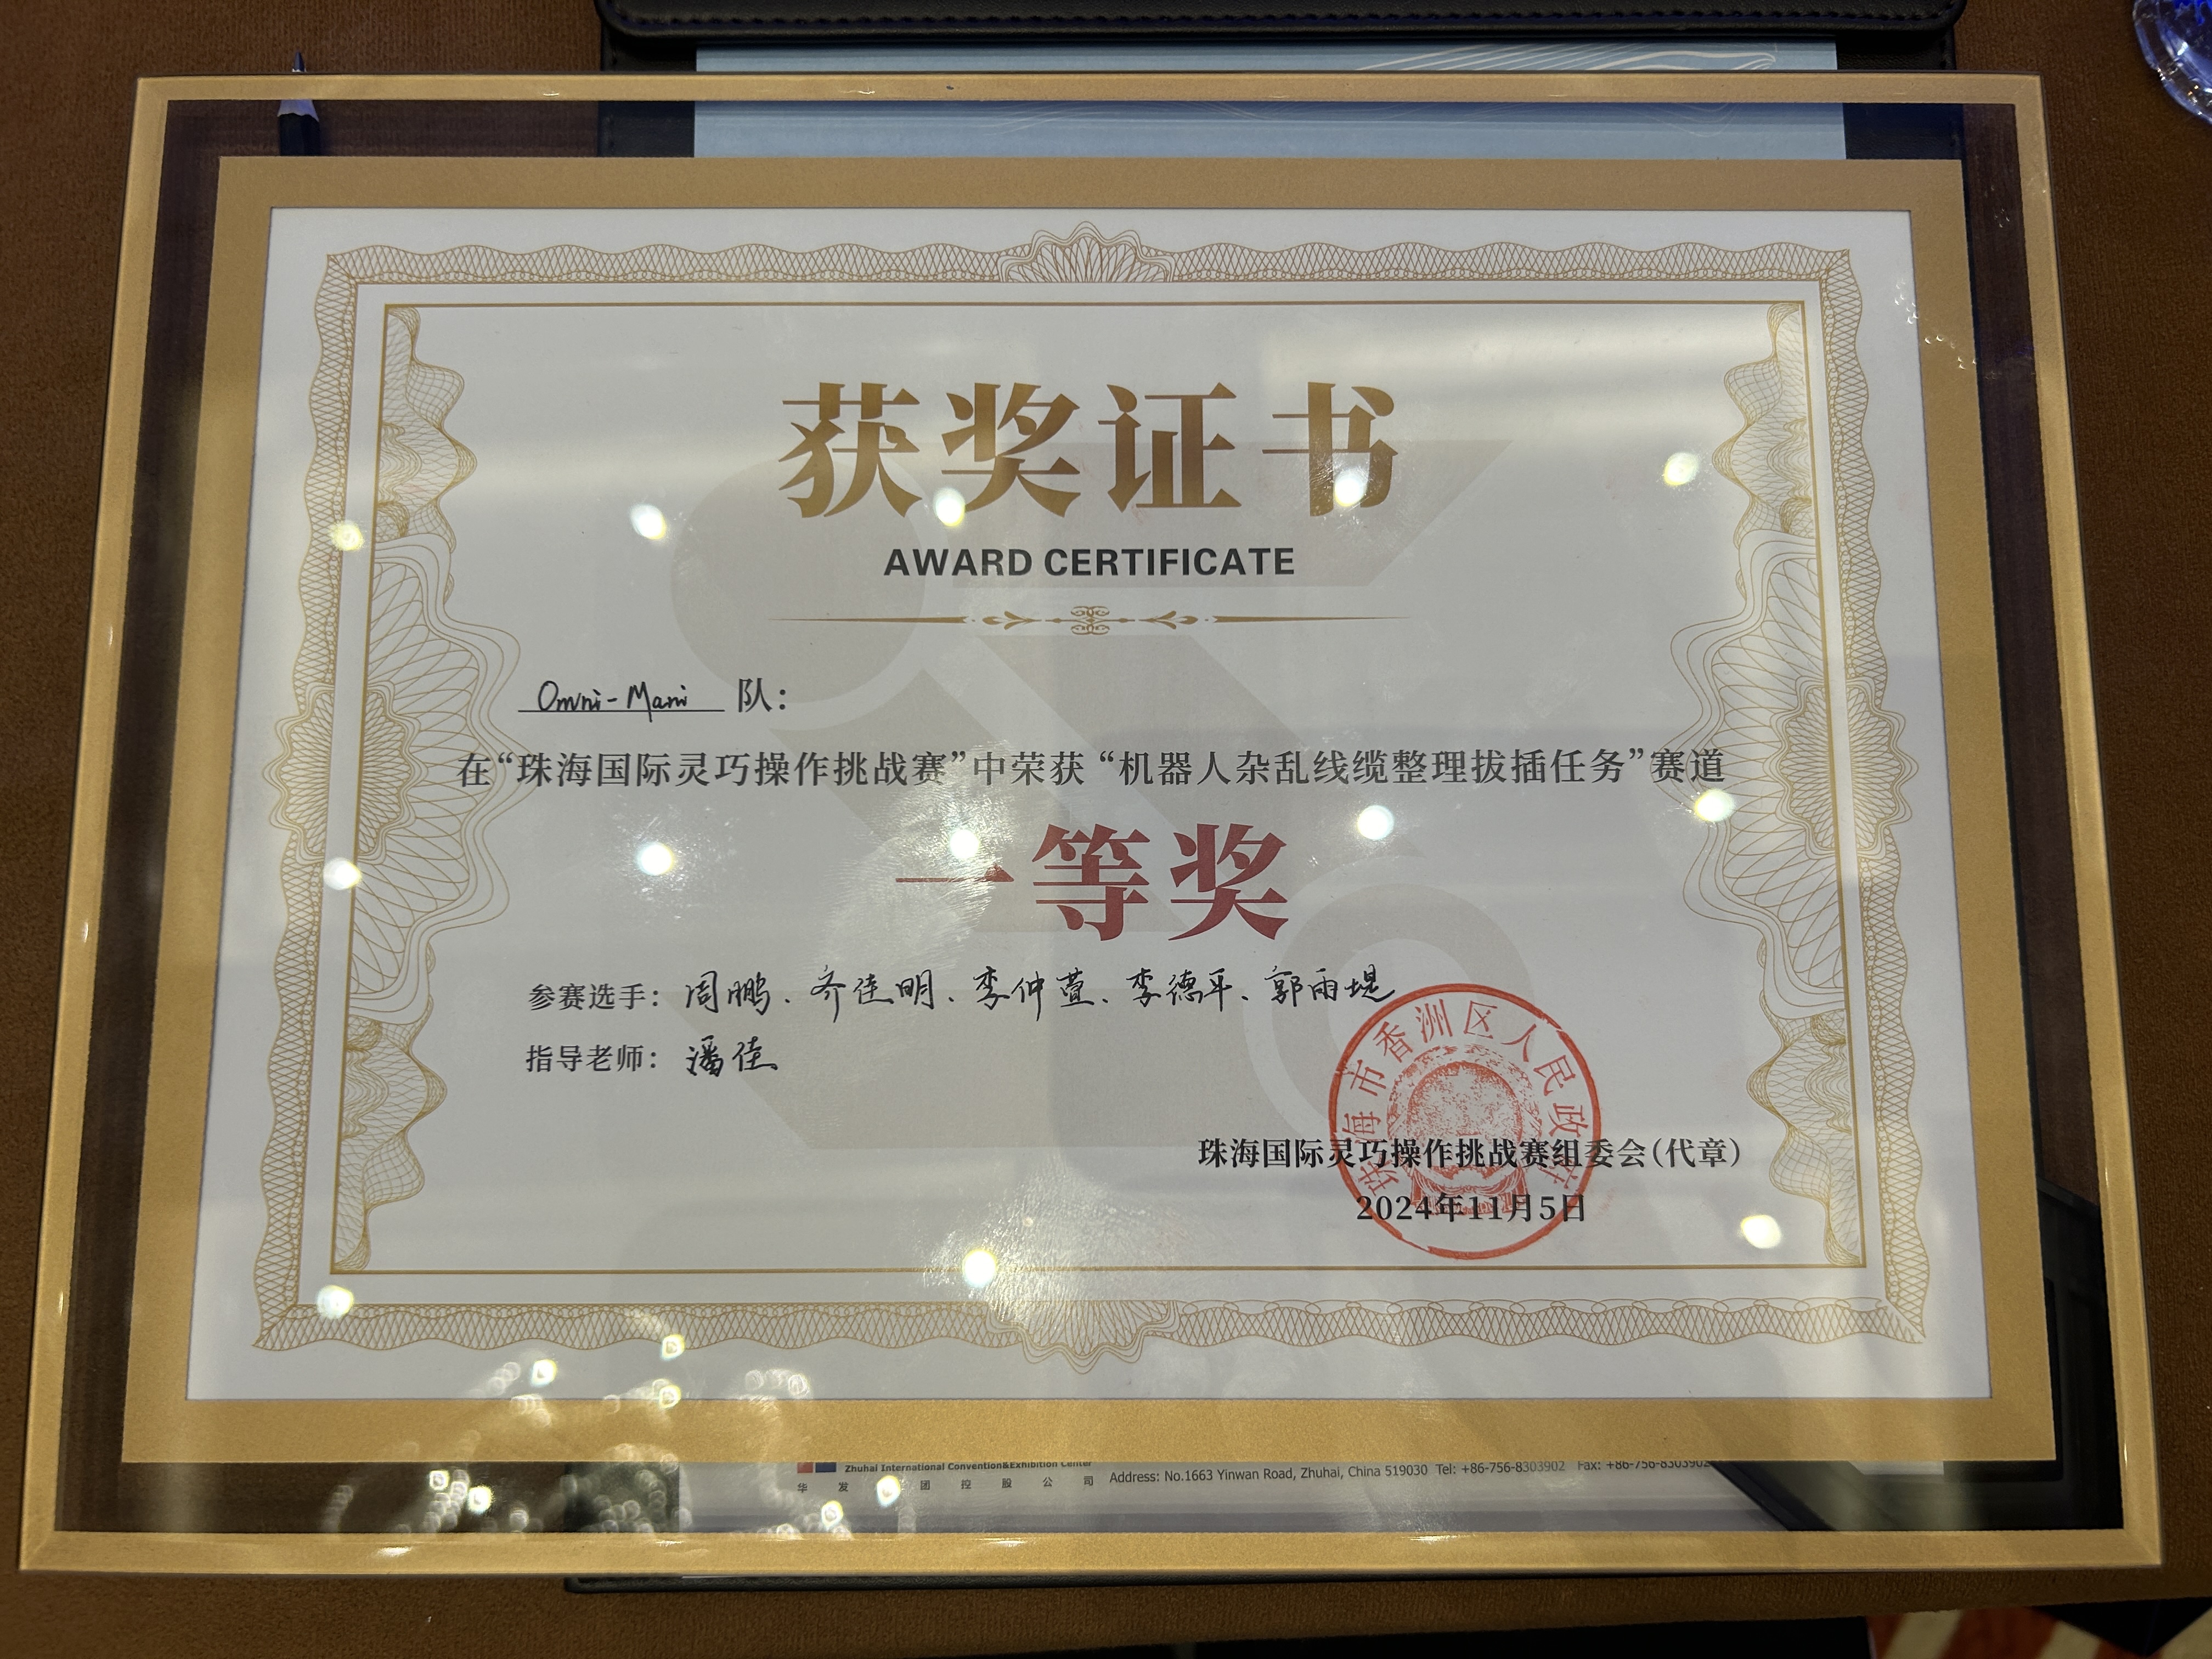 获奖证书
AWARD CERTIFICATE
Omni-Mani 队：
在“珠海国际灵巧操作挑战赛”中荣获“机器人杂乱线缆整理拔插任务”赛道
一等奖
参赛选手：周鹏、齐佳明、李仲萱、李德平、郭雨堤
指导老师：潘佳
珠海市香洲区人民政府
珠海国际灵巧操作挑战赛组委会(代章)
2024年11月5日
Zhuhai International Convention&Exhibition Center
华发 团控股公司 Address: No.1663 Yinwan Road, Zhuhai, China 519030 Tel: +86-756-8303902 Fax: +86-756-8303902